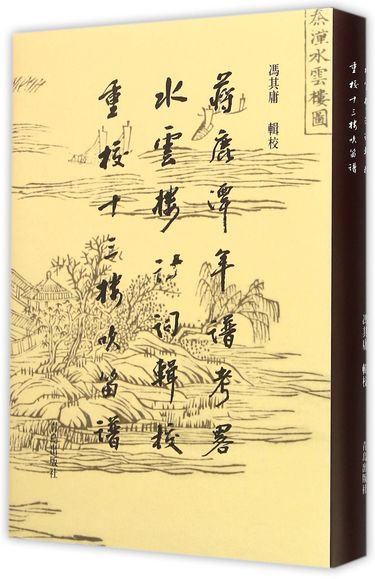 蔣鹿潭年譜考畧
水雲樓詩詞輯校
重校十三樓吹笛譜
馮其庸 輯校
泰潼水雲樓圖
青島出版社
重校十三樓吹笛譜
馮其庸 輯校
青島出版社